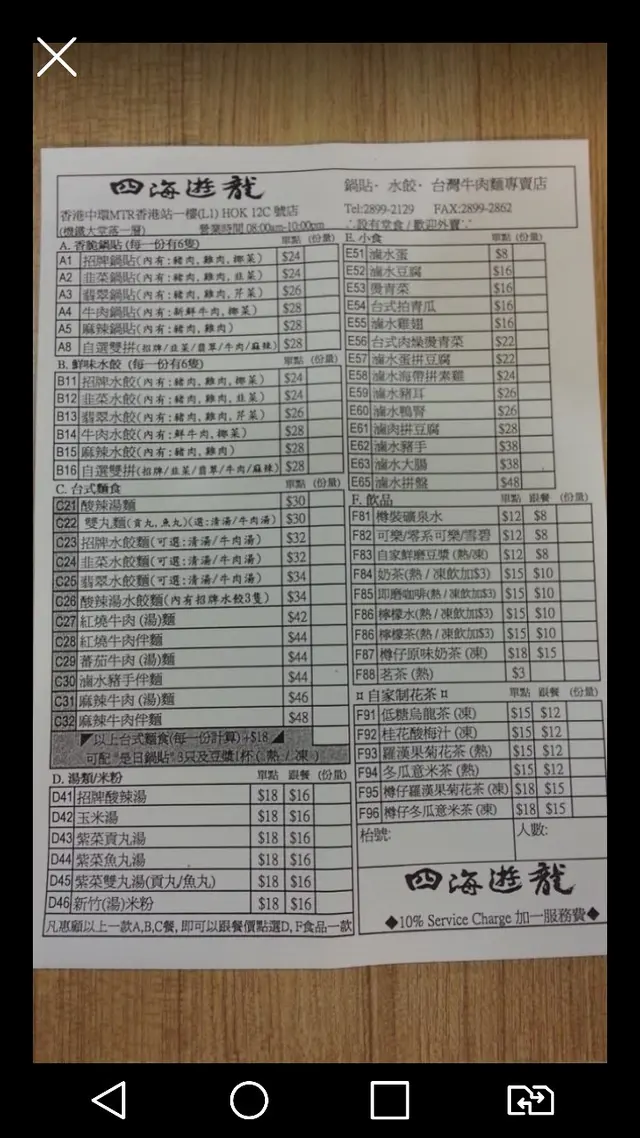 四海遊龍
鍋貼· 水餃· 台灣牛肉麵專賣店
香港中環MTR香港站一樓(L1) HOK 12C 號店
(機鐵大堂落一層) 營業時間 08:00am-10:00pm
Tel:2899-2129 FAX:2899-2862
∴設有堂食 / 歡迎外賣∵
A. 香脆鍋貼 (每一份有6隻) 單點 (份量)
A1 招牌鍋貼(內有:豬肉,雞肉,椰菜) $24
A2 韭菜鍋貼(內有:豬肉,雞肉,韭菜) $24
A3 翡翠鍋貼(內有:豬肉,雞肉,芹菜) $26
A4 牛肉鍋貼(內有:新鮮牛肉,椰菜) $28
A5 麻辣鍋貼(內有:豬肉,雞肉) $28
A8 自選雙拼(招牌/韭菜/翡翠/牛肉/麻辣) $28
B. 鮮味水餃 (每一份有6隻) 單點 (份量)
B11 招牌水餃(內有:豬肉,雞肉,椰菜) $24
B12 韭菜水餃(內有:豬肉,雞肉,韭菜) $24
B13 翡翠水餃(內有:豬肉,雞肉,芹菜) $26
B14 牛肉水餃(內有:鮮牛肉,椰菜) $28
B15 麻辣水餃(內有:豬肉,雞肉) $28
B16 自選雙拼(招牌/韭菜/翡翠/牛肉/麻辣) $28
C. 台式麵食 單點 (份量)
C21 酸辣湯麵 $30
C22 雙丸麵(貢丸,魚丸)(選:清湯/牛肉湯) $30
C23 招牌水餃麵(可選:清湯/牛肉湯) $32
C24 韭菜水餃麵(可選:清湯/牛肉湯) $32
C25 翡翠水餃麵(可選:清湯/牛肉湯) $34
C26 酸辣湯水餃麵(內有招牌水餃3隻) $34
C27 紅燒牛肉 (湯)麵 $42
C28 紅燒牛肉伴麵 $44
C29 蕃茄牛肉 (湯)麵 $44
C30 滷水豬手伴麵 $44
C31 麻辣牛肉 (湯)麵 $46
C32 麻辣牛肉伴麵 $48
◤以上台式麵食(每一份計算) +$18◢
可配 "是日鍋貼" 3只及豆漿1杯 ( 熱 / 凍 )
D. 湯類/米粉 單點 跟餐 (份量)
D41 招牌酸辣湯 $18 $16
D42 玉米湯 $18 $16
D43 紫菜貢丸湯 $18 $16
D44 紫菜魚丸湯 $18 $16
D45 紫菜雙丸湯(貢丸/魚丸) $18 $16
D46 新竹(湯)米粉 $18 $16
凡惠顧以上一款A,B,C餐, 即可以跟餐價點選D, F食品一款
E. 小食 單點 (份量)
E51 滷水蛋 $8
E52 滷水豆腐 $16
E53 燙青菜 $16
E54 台式拍青瓜 $16
E55 滷水雞翅 $16
E56 台式肉燥燙青菜 $22
E57 滷水蛋拼豆腐 $22
E58 滷水海帶拼素雞 $24
E59 滷水豬耳 $26
E60 滷水鴨腎 $26
E61 滷肉拼豆腐 $28
E62 滷水豬手 $38
E63 滷水大腸 $38
E65 滷水拼盤 $48
F. 飲品 單點 跟餐 (份量)
F81 樽裝礦泉水 $12 $8
F82 可樂/零系可樂/雪碧 $12 $8
F83 自家鮮磨豆漿 (熱/凍) $12 $8
F84 奶茶(熱 / 凍飲加$3) $15 $10
F85 即磨咖啡(熱 / 凍飲加$3) $15 $10
F86 檸檬水(熱 / 凍飲加$3) $15 $10
F86 檸檬茶(熱 / 凍飲加$3) $15 $10
F87 樽仔原味奶茶 (凍) $18 $15
F88 茗茶 (熱) $3
¤ 自家制花茶 ¤ 單點 跟餐 (份量)
F91 低糖烏龍茶 (凍) $15 $12
F92 桂花酸梅汁 (凍) $15 $12
F93 羅漢果菊花茶 (熱) $15 $12
F94 冬瓜意米茶 (熱) $15 $12
F95 樽仔羅漢果菊花茶 (凍) $18 $15
F96 樽仔冬瓜意米茶 (凍) $18 $15
枱號: 人數:
四海遊龍
◆10% Service Charge 加一服務費◆